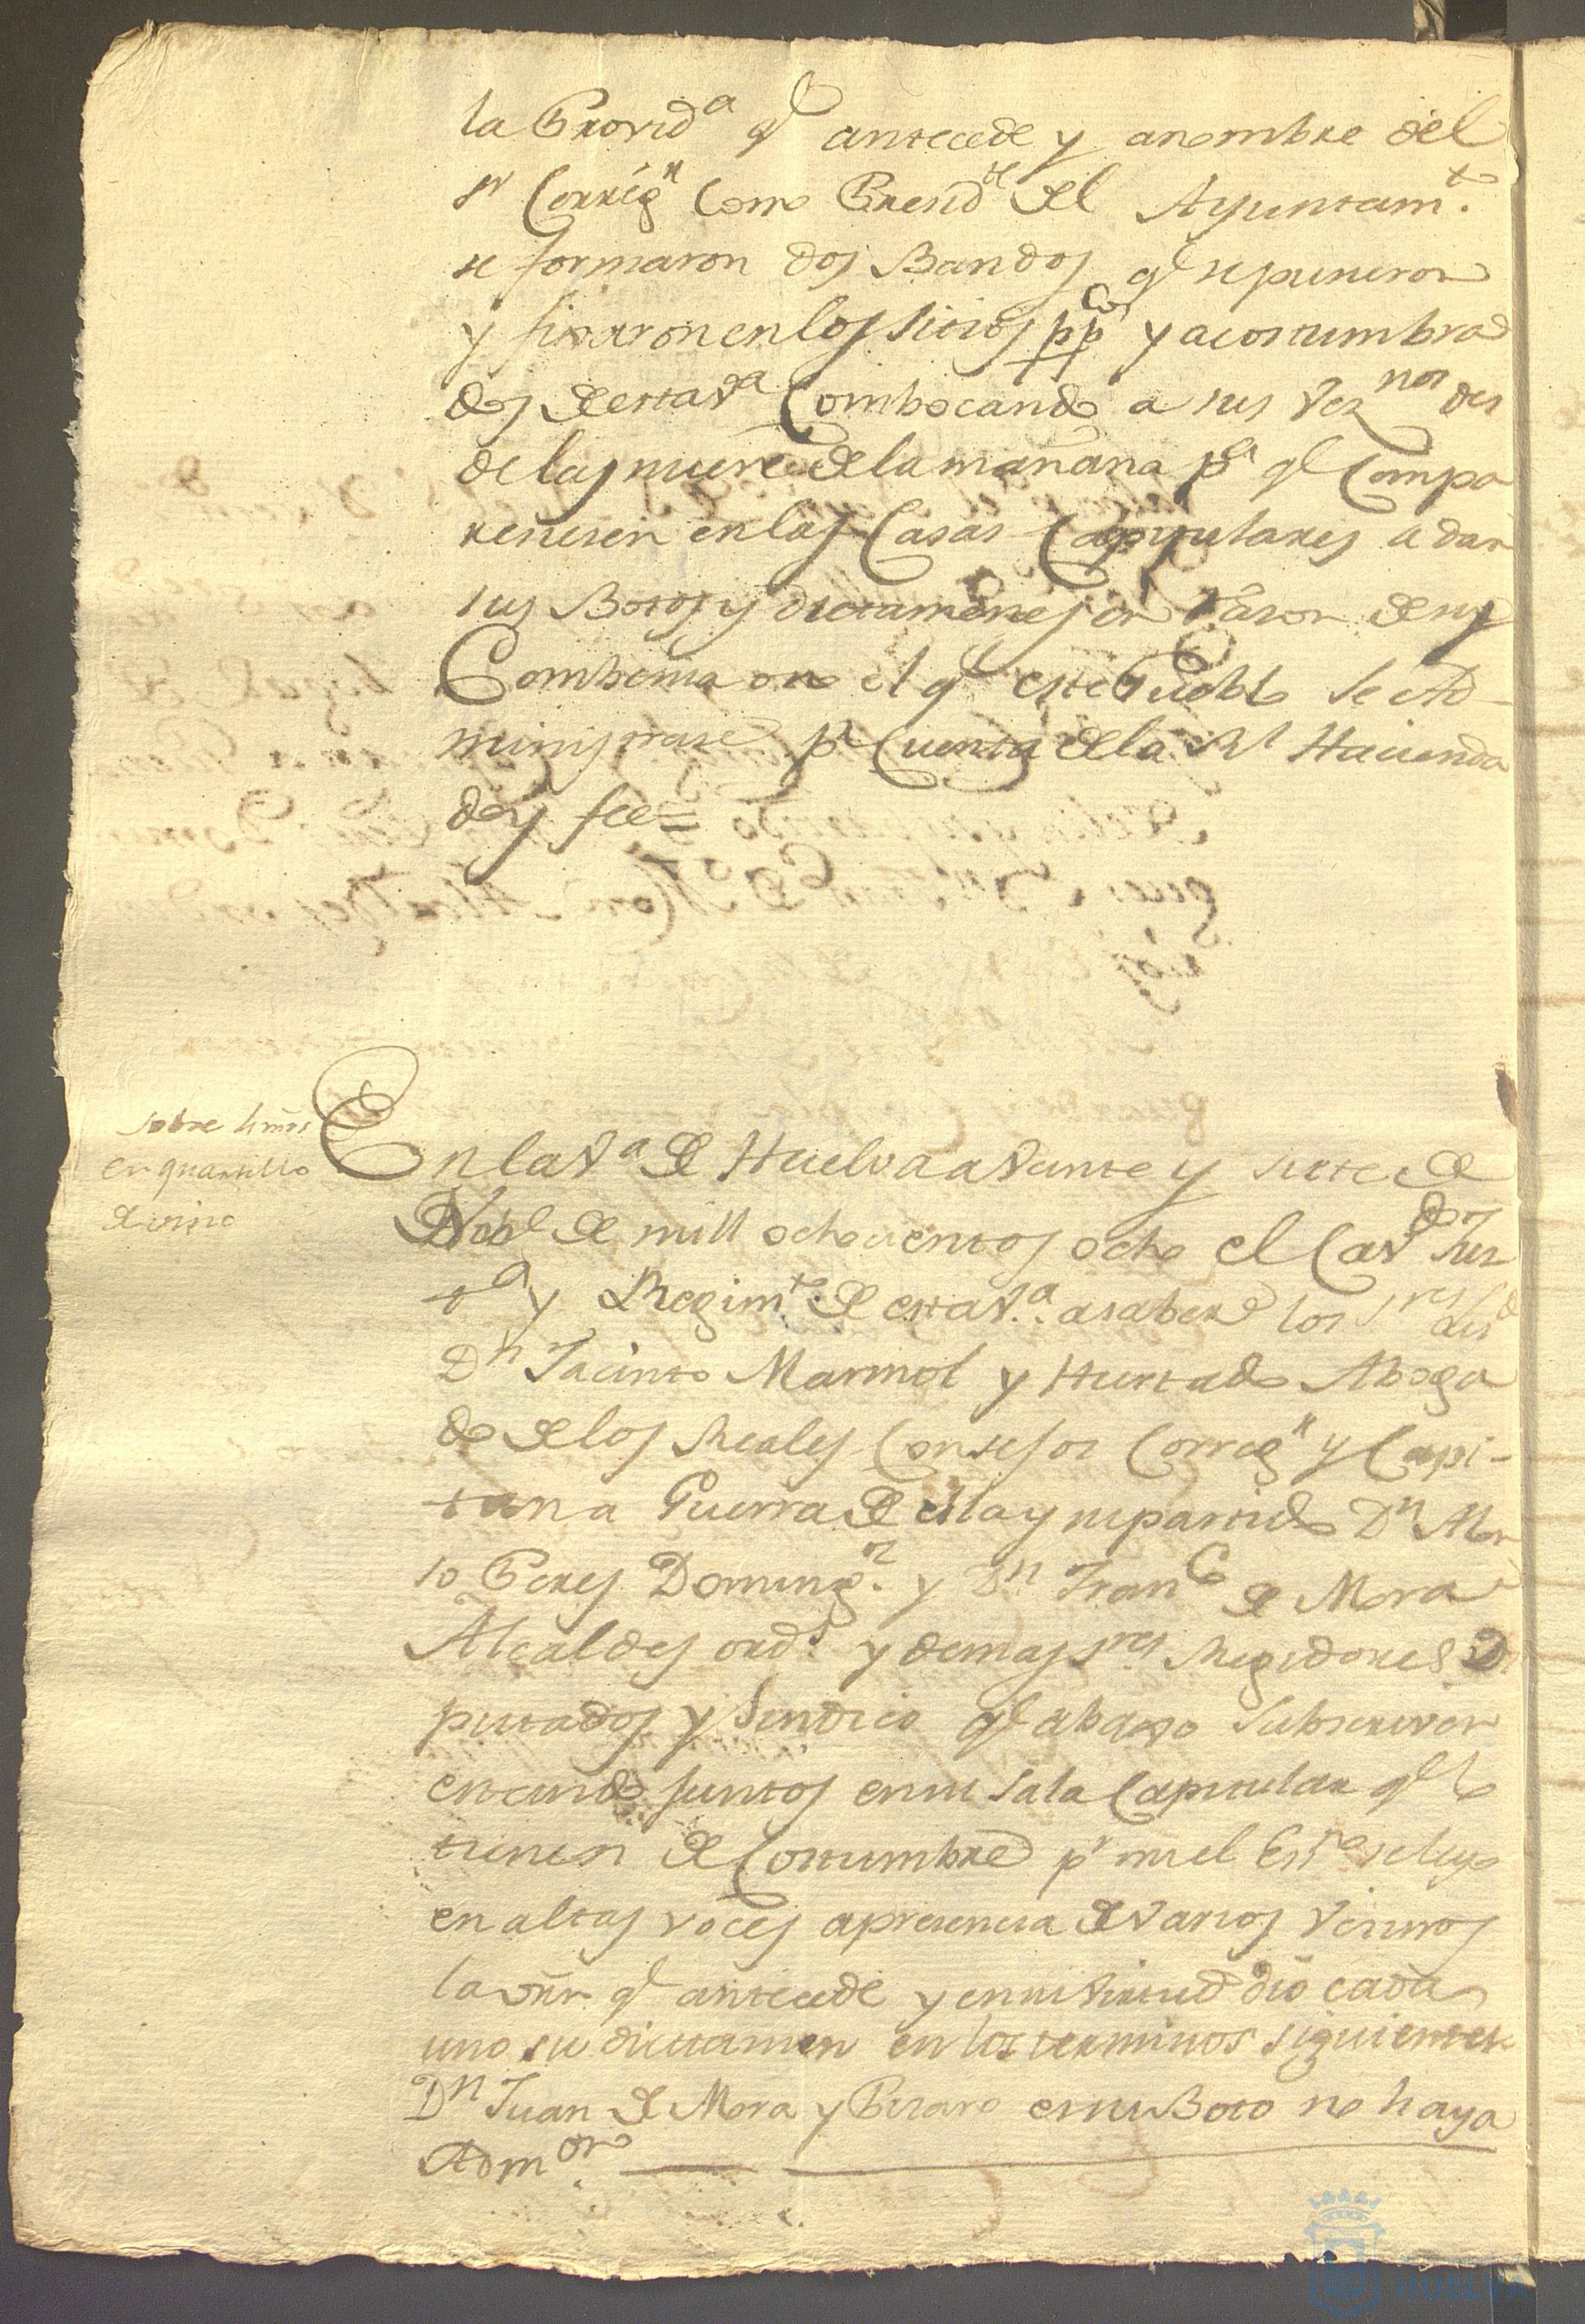 la Provid.a q.e antecede y anombre del
S.r Correg.r Como Presid.te del Ayuntam.to
se formaron dos Bandos q.e sepusieron
y fixaron en los sitios pp.cos y acostumbra
dos de esta V.a Combocando a sus Vez.nos des
de las nueve dela mañana p.a q.e Compa
reciesen en las Casas Capitulares a dar
sus Botos y dictamenes en rason de si
Combenia o no el q.e este Pueblo se Ad-
ministrase p.r Cuenta dela R.l Hacienda
doy fee=
sobre
en quartillo
de vino
En la V.a de Huelva a Veinte y siete de
Nob.e de mill ochocientos ocho el Cav.do Jus
t.a y Regim.to de esta V.a asaber los S.res Lis.do
D.n Jacinto Marmol y Hurtado Aboga
do de los Reales Consejos Correg.r y Capi-
tan a Guerra de ella y su partido D.n Alon
so Peres Doming.z y D.n Fran.co de Mora
Alcaldes ord.s y demas S.res Regidores Di
putados y Sindico q.e abaxo subscriven
estando juntos en su Sala Capitular q.e lo
tienen de Costumbre p.r mi el Es.no se leyo
en altas voces apresencia de Varios Vecinos
la orn. q.e antecede y en su Virtud dio cada
uno su dictamen en los terminos siguientes
D.n Juan de Mora y Pizaro es su Boto no haya
Adm.on
HUELVA